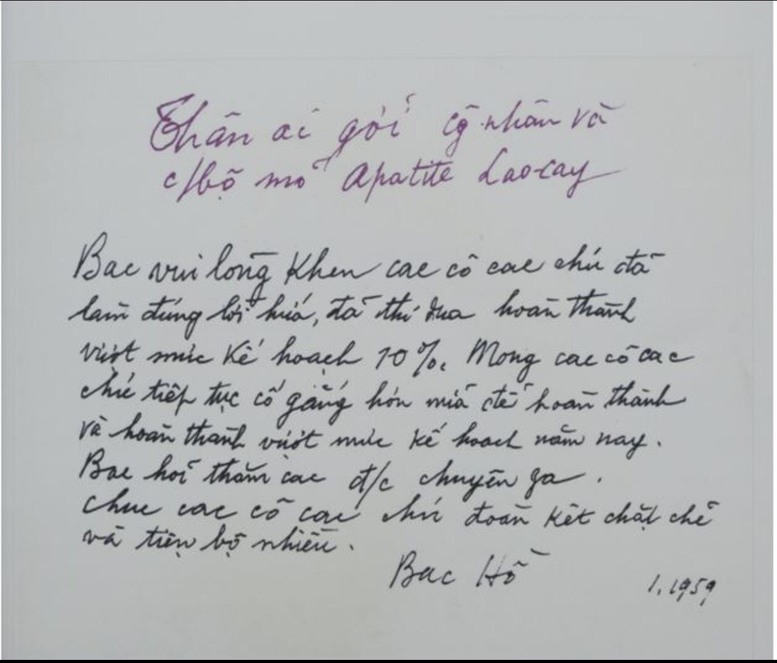 Thân ái gởi cg. nhân và
c/bộ mỏ Apatite Lao-cay
Bac vui lòng khen cac cô cac chú đã
làm đúng lời hứa, đã thi đua hoàn thành
vượt mức kế hoạch 10%. Mong cac cô cac
chú tiếp tục cố gắng hơn nữa để hoàn thành
và hoàn thành vượt mức kế hoạch năm nay.
Bac hỏi thăm cac đ/c chuyên gia.
Chuc cac cô cac chú đoàn kết chặt chẽ
và tiến bộ nhiều.
Bac Hồ
1.1959